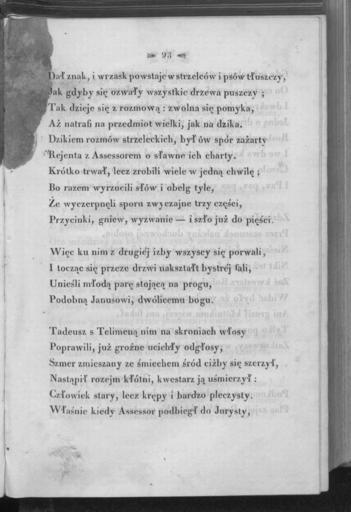 93
Dał znak, i wrzask powstaje w strzelców i psów tłuszczy,
Jak gdyby się ozwały wszystkie drzewa puszczy ;
Tak dzieje się z rozmową : zwolna się pomyka,
Aż natrafi na przedmiot wielki, jak na dzika.
Dzikiem rozmów strzeleckich, był ów spór zażarty
Rejenta z Assessorem o sławne ich charty.
Krótko trwał, lecz zrobili wiele w jedną chwilę ;
Bo razem wyrzucili słów i obelg tyle,
Że wyczerpnęli sporu zwyczajne trzy części,
Przycinki, gniew, wyzwanie — i szło już do pięści.
Więc ku nim z drugiéj izby wszyscy się porwali,
I tocząc się przeze drzwi nakształt bystréj fali,
Unieśli młodą parę stojącą na progu,
Podobną Janusowi, dwólicemu bogu.
Tadeusz s Telimeną nim na skroniach włosy
Poprawili, już groźne ucichły odgłosy,
Szmer zmieszany ze śmiechem śród ciżby się szerzył,
Nastąpił rozejm kłótni, kwestarz ją uśmierzył :
Człowiek stary, lecz krępy i bardzo pleczysty.
Właśnie kiedy Assessor podbiegł do Jurysty,